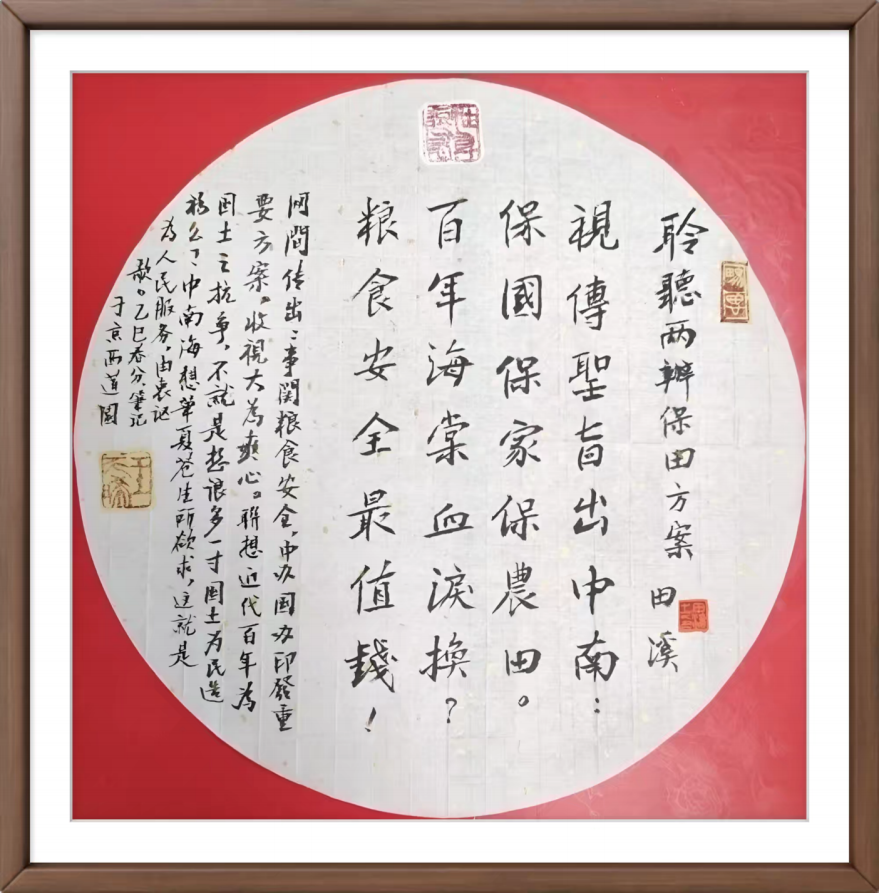 聆聽两辦保田方案 田溪
視傳聖旨出中南：
保國保家保農田。
百年海棠血淚換？
粮食安全最值錢！
网間传出：事関粮食安全，中办国办印發重
要方案。收視大為爽心。聯想近代百年為
国土之抗争，不就是想很多一寸国土为民造
福么？中南海想華夏苍生所欲求，这就是
為人民服务，由衷讴
歌。乙巳春分筆记
于京西道園